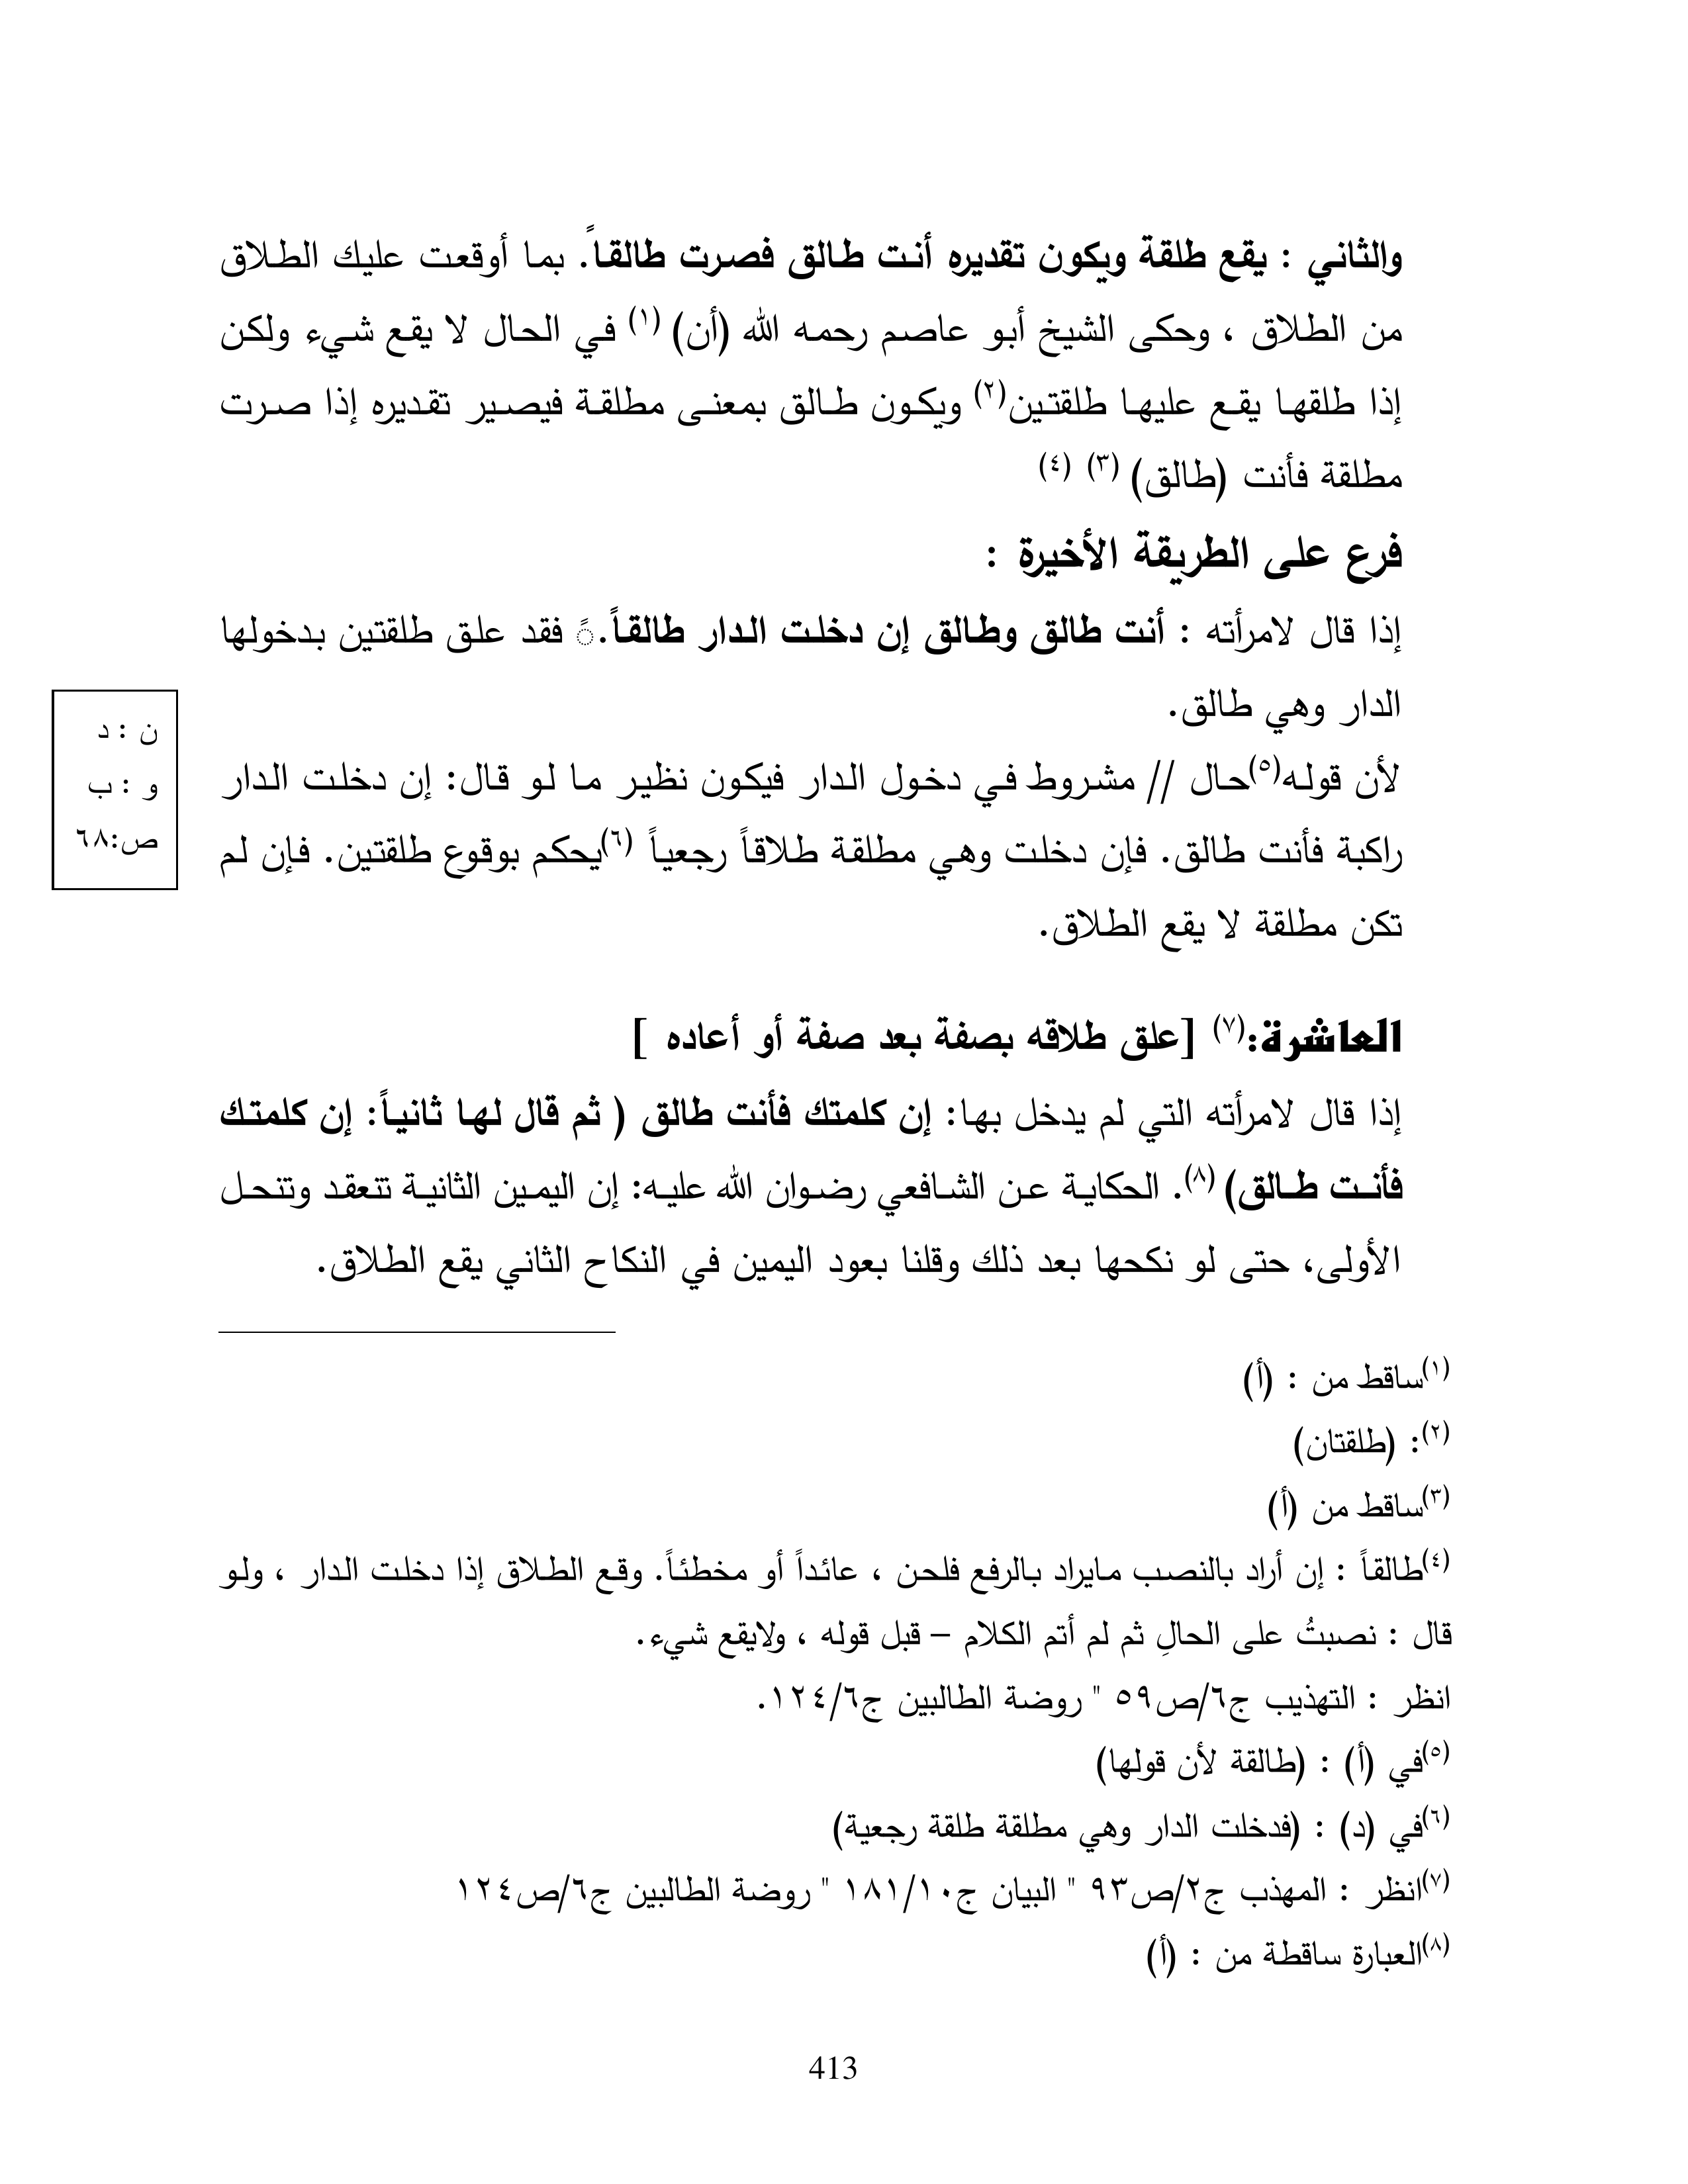 والثاني : يقع طلقة ويكون تقديره أنت طالق فصرت طالقاً. بما أوقعت عليك الطلاق
من الطلاق ، وحكى الشيخ أبو عاصم رحمه الله (أن) (١) في الحال لا يقع شيء ولكن
إذا طلقها يقع عليها طلقتين(٢) ويكون طالق بمعنى مطلقة فيصير تقديره إذا صرت
مطلقة فأنت (طالق) (٣) (٤)
فرع على الطريقة الأخيرة :
إذا قال لامرأته : أنت طالق وطالق إن دخلت الدار طالقاً.ً فقد علق طلقتين بدخولها
الدار وهي طالق.
لأن قوله(٥)حال // مشروط في دخول الدار فيكون نظير ما لو قال: إن دخلت الدار
راكبة فأنت طالق. فإن دخلت وهي مطلقة طلاقاً رجعياً (٦)يحكم بوقوع طلقتين. فإن لم
تكن مطلقة لا يقع الطلاق.
ن : د
و : ب
ص:٦٨
العاشرة:(٧) [علق طلاقه بصفة بعد صفة أو أعاده ]
إذا قال لامرأته التي لم يدخل بها: إن كلمتك فأنت طالق ( ثم قال لها ثانياً: إن كلمتك
فأنت طالق) (٨). الحكاية عن الشافعي رضوان الله عليه: إن اليمين الثانية تتعقد وتنحل
الأولى، حتى لو نكحها بعد ذلك وقلنا بعود اليمين في النكاح الثاني يقع الطلاق.
(١)ساقط من : (أ)
(٢): (طلقتان)
(٣)ساقط من (أ)
(٤)طالقاً : إن أراد بالنصب مايراد بالرفع فلحن ، عائداً أو مخطئاً. وقع الطلاق إذا دخلت الدار ، ولو
قال : نصبتُ على الحالِ ثم لم أتم الكلام – قبل قوله ، ولايقع شيء.
انظر : التهذيب ج٦/ص٥٩ " روضة الطالبين ج٦/١٢٤.
(٥)في (أ) : (طالقة لأن قولها)
(٦)في (د) : (فدخلت الدار وهي مطلقة طلقة رجعية)
(٧)انظر : المهذب ج٢/ص٩٣ " البيان ج١٨١/١٠ " روضة الطالبين ج٦/ص١٢٤
(٨)العبارة ساقطة من : (أ)
413